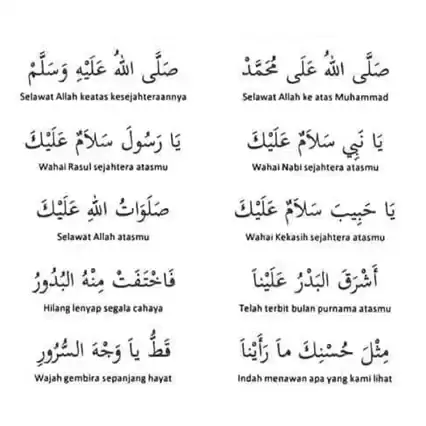 صَلَّى اللهُ عَلَى مُحَمَّدْ
Selawat Allah ke atas Muhammad
صَلَّى اللهُ عَلَيْهِ وَسَلَّمْ
Selawat Allah keatas kesejahteraannya
يَا نَبِي سَلَامٌ عَلَيْكَ
Wahai Nabi sejahtera atasmu
يَا رَسُولَ سَلَامٌ عَلَيْكَ
Wahai Rasul sejahtera atasmu
يَا حَبِيبَ سَلَامٌ عَلَيْكَ
Wahai Kekasih sejahtera atasmu
صَلَوَاتُ اللهِ عَلَيْكَ
Selawat Allah atasmu
أَشْرَقَ الْبَدْرُ عَلَيْنَا
Telah terbit bulan purnama atasmu
فَاخْتَفَتْ مِنْهُ الْبُدُورُ
Hilang lenyap segala cahaya
مِثْلَ حُسْنِكَ مَا رَأَيْنَا
Indah menawan apa yang kami lihat
قَطُّ يَا وَجْهَ السُّرُورِ
Wajah gembira sepanjang hayat